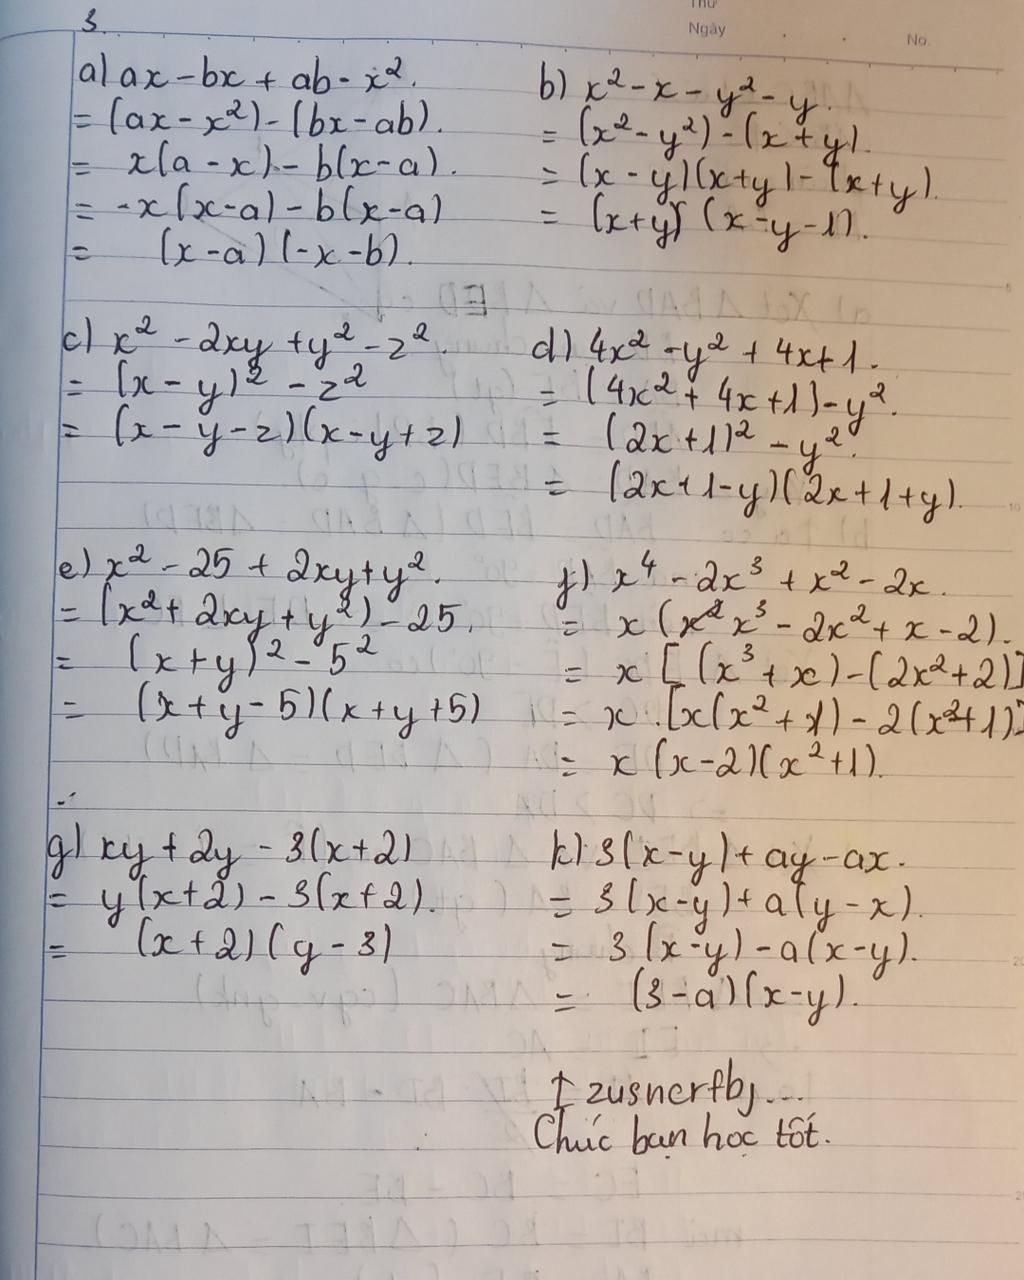 Thứ
Ngày
No.
3.
a) ax - bx + ab - x².
= (ax - x²) - (bx - ab).
= x(a - x) - b(x - a).
= -x(x-a) - b(x-a)
= (x-a)(-x-b).
b) x² - x - y² - y.
= (x² - y²) - (x + y).
= (x - y)(x+y) - (x+y).
= (x+y)(x-y-1).
c) x² - 2xy + y² - z².
= (x - y)² - z²
= (x - y - z)(x - y + z)
d) 4x² - y² + 4x + 1.
= (4x² + 4x + 1) - y².
= (2x + 1)² - y².
= (2x + 1 - y)(2x + 1 + y).
e) x² - 25 + 2xy + y².
= (x² + 2xy + y²) - 25.
= (x + y)² - 5²
= (x + y - 5)(x + y + 5)
f) x⁴ - 2x³ + x² - 2x.
= x (x³ - 2x² + x - 2).
= x [(x³ + x) - (2x² + 2)]
= x.[x(x² + 1) - 2(x² + 1)]
= x (x-2)(x² + 1).
g) xy + 2y - 3(x + 2)
= y(x+2) - 3(x+2).
= (x + 2)(y - 3)
k) 3(x-y) + ay - ax.
= 3(x-y) + a(y - x).
= 3(x-y) - a(x-y).
= (3 - a)(x-y).
zusnerfbj...
Chúc bạn học tốt.